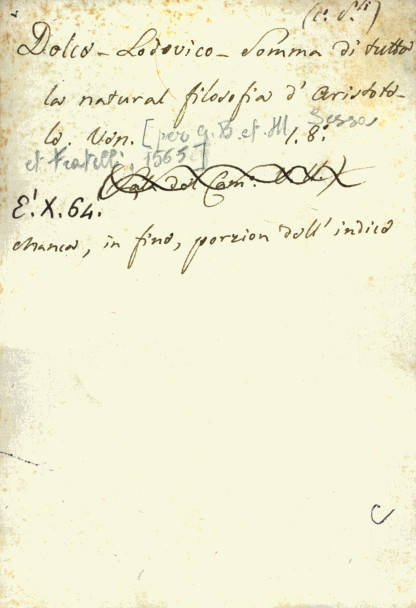 (c. S.ti)
Dolce - Lodovico - Somma di tutta
la natural filosofia d' Aristote-
le. Ven. [per G. B. et M. Sessa 1. 8.°
et Fratelli, 1565?]
E'. X. 64.
Manca, in fine, porzion dell' indice